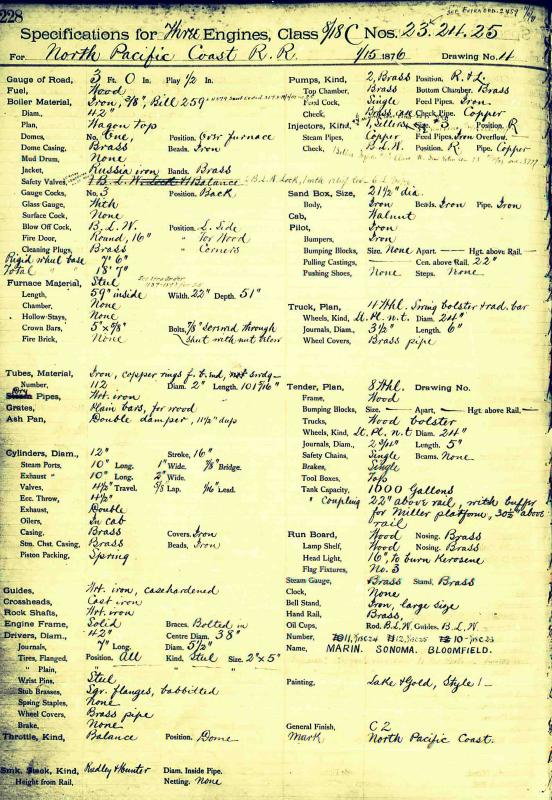 228
See Extra Ord. 2459
Specifications for Three Engines, Class 8/18 C Nos. 23. 24. 25
For North Pacific Coast R. R. 1/15 1876 Drawing No. 4
Gauge of Road, 3 Ft. 0 In. Play 1/2 In.
Fuel, Wood
Boiler Material, Iron, 3/8", Bill 259
Diam., 42"
Plan, Wagon top
Domes, No. One, Position. Over furnace
Dome Casing, Brass Beads. Iron
Mud Drum, None
Jacket, Russia iron Bands. Brass
Safety Valves, 1 B. L. W. Lock & 1 Balance
Gauge Cocks, No. 3 Position. Back
Glass Gauge, With
Surface Cock, None
Blow Off Cock, B. L. W. " L. Side
Fire Door, Round, 16" " For Wood
Cleaning Plugs, Brass " Corners
Rigid wheel base 7' 6"
Total " " 18' 7"
Furnace Material, Steel
Length, 59" inside Width. 22" Depth. 51"
Chamber, None
Hollow-Stays, None
Crown Bars, 5" x 5/8" Bolts, 7/8 Screwed through
Fire Brick, None & nut with nut below
Tubes, Material, Iron, copper rings f. b. ind,
Number, 112 Diam. 2" Length. 101 9/16"
Dry Steam Pipes, Wrt. iron
Grates, Plain bars, for wood
Ash Pan, Double damper, 11 1/2" deep
Cylinders, Diam., 12" Stroke, 16"
Steam Ports, 10" Long. 1" Wide. 7/8 Bridge.
Exhaust " 10" Long. 2" Wide.
Valves, 4 1/2" Travel. 5/8 Lap. 1/16 Lead.
Ecc. Throw, 4 1/2"
Exhaust, Double
Oilers, In cab
Casing, Brass Covers. Iron
Stm. Chst. Casing, Brass Beads, Iron
Piston Packing, Spring
Guides, Wrt. iron, casehardened
Crossheads, Cast iron
Rock Shafts, Wrt. iron
Engine Frame, Solid Braces. Bolted in
Drivers, Diam., 42" Centre Diam. 38"
Journals, 7" Long. Diam. 5 1/2"
Tires, Flanged, Position. All Kind, Steel Size. 2" x 5"
" Plain, " " "
Wrist Pins, Steel
Stub Brasses, Sqr. flanges, babbitted
Spring Staples, None
Wheel Covers, Brass pipe
Brake, None
Throttle, Kind, Balance Position. Dome
Smk. Stack, Kind, Radley & Hunter Diam. Inside Pipe.
Height from Rail, Netting. None
Pumps, Kind, 2, Brass Position. R & L
Top Chamber, Brass Bottom Chamber. Brass
Feed Cock, Single Feed Pipes. Iron
Check, Brass case Check Pipe. Copper
Injectors, Kind, Sellers Size # 3 Position. R
Steam Pipes, Copper Feed Pipes, Iron Overflow.
Check, B. L. W. Position. R Pipe. Copper
Sand Box, Size, 21 1/2" dia.
Body, Iron Beads. Iron Pipe. Iron
Cab, Walnut
Pilot, Iron
Bumpers, Iron
Bumping Blocks, Size. None Apart. — Hgt. above Rail. —
Pulling Castings, — Cen. above Rail. 22"
Pushing Shoes, None Steps. None
Truck, Plan, 4 Whl. Swing bolster & rad. bar
Wheels, Kind, St. Pl. n. t. Diam. 24"
Journals, Diam., 3 1/2" Length. 6"
Wheel Covers, Brass pipe
Tender, Plan, 8 Whl. Drawing No.
Frame, Wood
Bumping Blocks, Size. — Apart, — Hgt. above Rail. —
Trucks, Wood bolster
Wheels, Kind, St. Pl. n. t Diam. 24"
Journals, Diam., 2 3/4" Length. 5"
Safety Chains, Single Beams. None
Brakes, Single
Tool Boxes, Top
Tank Capacity, 1000 Gallons
" Coupling 22" above rail, with buffer
for Miller platform, 30 1/2" above
rail
Run Board, Wood Nosing. Brass
Lamp Shelf, Wood Nosing. Brass
Head Light, 16", to burn Kerosene
Flag Fixtures, No. 3
Steam Gauge, Brass Stand, Brass
Clock, None
Bell Stand, Iron, large size
Hand Rail, Brass,
Oil Cups, Rod. B. L. W. Guides. B. L. W.
Number, 11, 24 12, 25 10 - 23
Name, MARIN. SONOMA. BLOOMFIELD.
Painting, Lake & Gold, Style 1 —
General Finish, C 2
Mark North Pacific Coast.